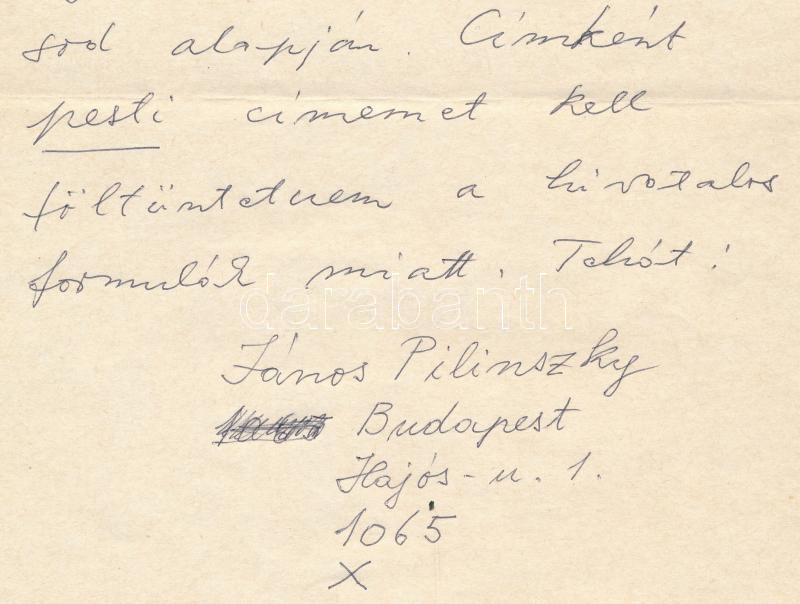 sod alapján. Címként
pesti címemet kell
föltüntetnem a hivatalos
formulák miatt. Tehát:
darabanth
János Pilinszky
Budapest
Hajós-u. 1.
1065
X